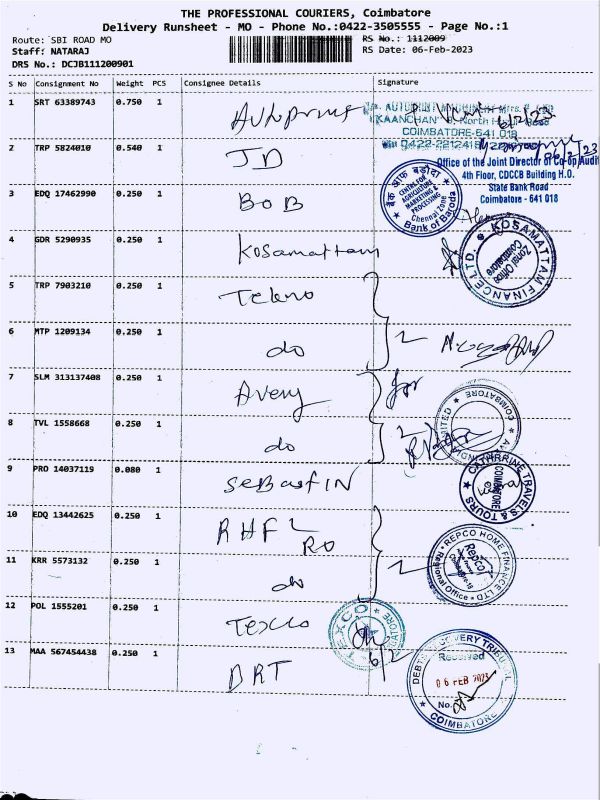 THE PROFESSIONAL COURIERS, Coimbatore
Delivery Runsheet - MO - Phone No.:0422-3505555 - Page No.:1
Route: SBI ROAD MO
RS No.: 1112009
Staff: NATARAJ
RS Date: 06-Feb-2023
DRS No.: DCJB111200901
S No Consignment No Weight PCS Consignee Details Signature
1 SRT 63389743 0.750 1 Autoprint
COIMBATORE-641 018
6/2/23
2 TRP 5824010 0.540 1 JD
Office of the Joint Director of Co-op Audit
4th Floor, CDCCB Building H.O.
State Bank Road
Coimbatore - 641 018
3 EDQ 17462990 0.250 1 BOB
बैंक ऑफ़ बड़ौदा
CENTRE FOR AGRICULTURE MARKETING & PROCESSING
Chennai Zone
Bank of Baroda
4 GDR 5290935 0.250 1 Kosamattam
KOSAMATTAM FINANCE LTD.
Zonal Office
Coimbatore
5 TRP 7903210 0.250 1 Tekno
6 MTP 1209134 0.250 1 do
2
7 SLM 313137408 0.250 1 Avery
for
COIMBATORE
8 TVL 1558668 0.250 1 do
2
9 PRO 14037119 0.080 1 SeBastIN
CATHRINE TRAVELS & TOURS
COIMBATORE
10 EDQ 13442625 0.250 1 RHFL
RO
REPCO HOME FINANCE LTD
Regional Office
Repco
11 KRR 5573132 0.250 1 do
2
12 POL 1555201 0.250 1 Texco
TEXCO
6/2
13 MAA 567454438 0.250 1 DRT
DEBTS RECOVERY TRIBUNAL
Received
06 FEB 2023
No.
COIMBATORE